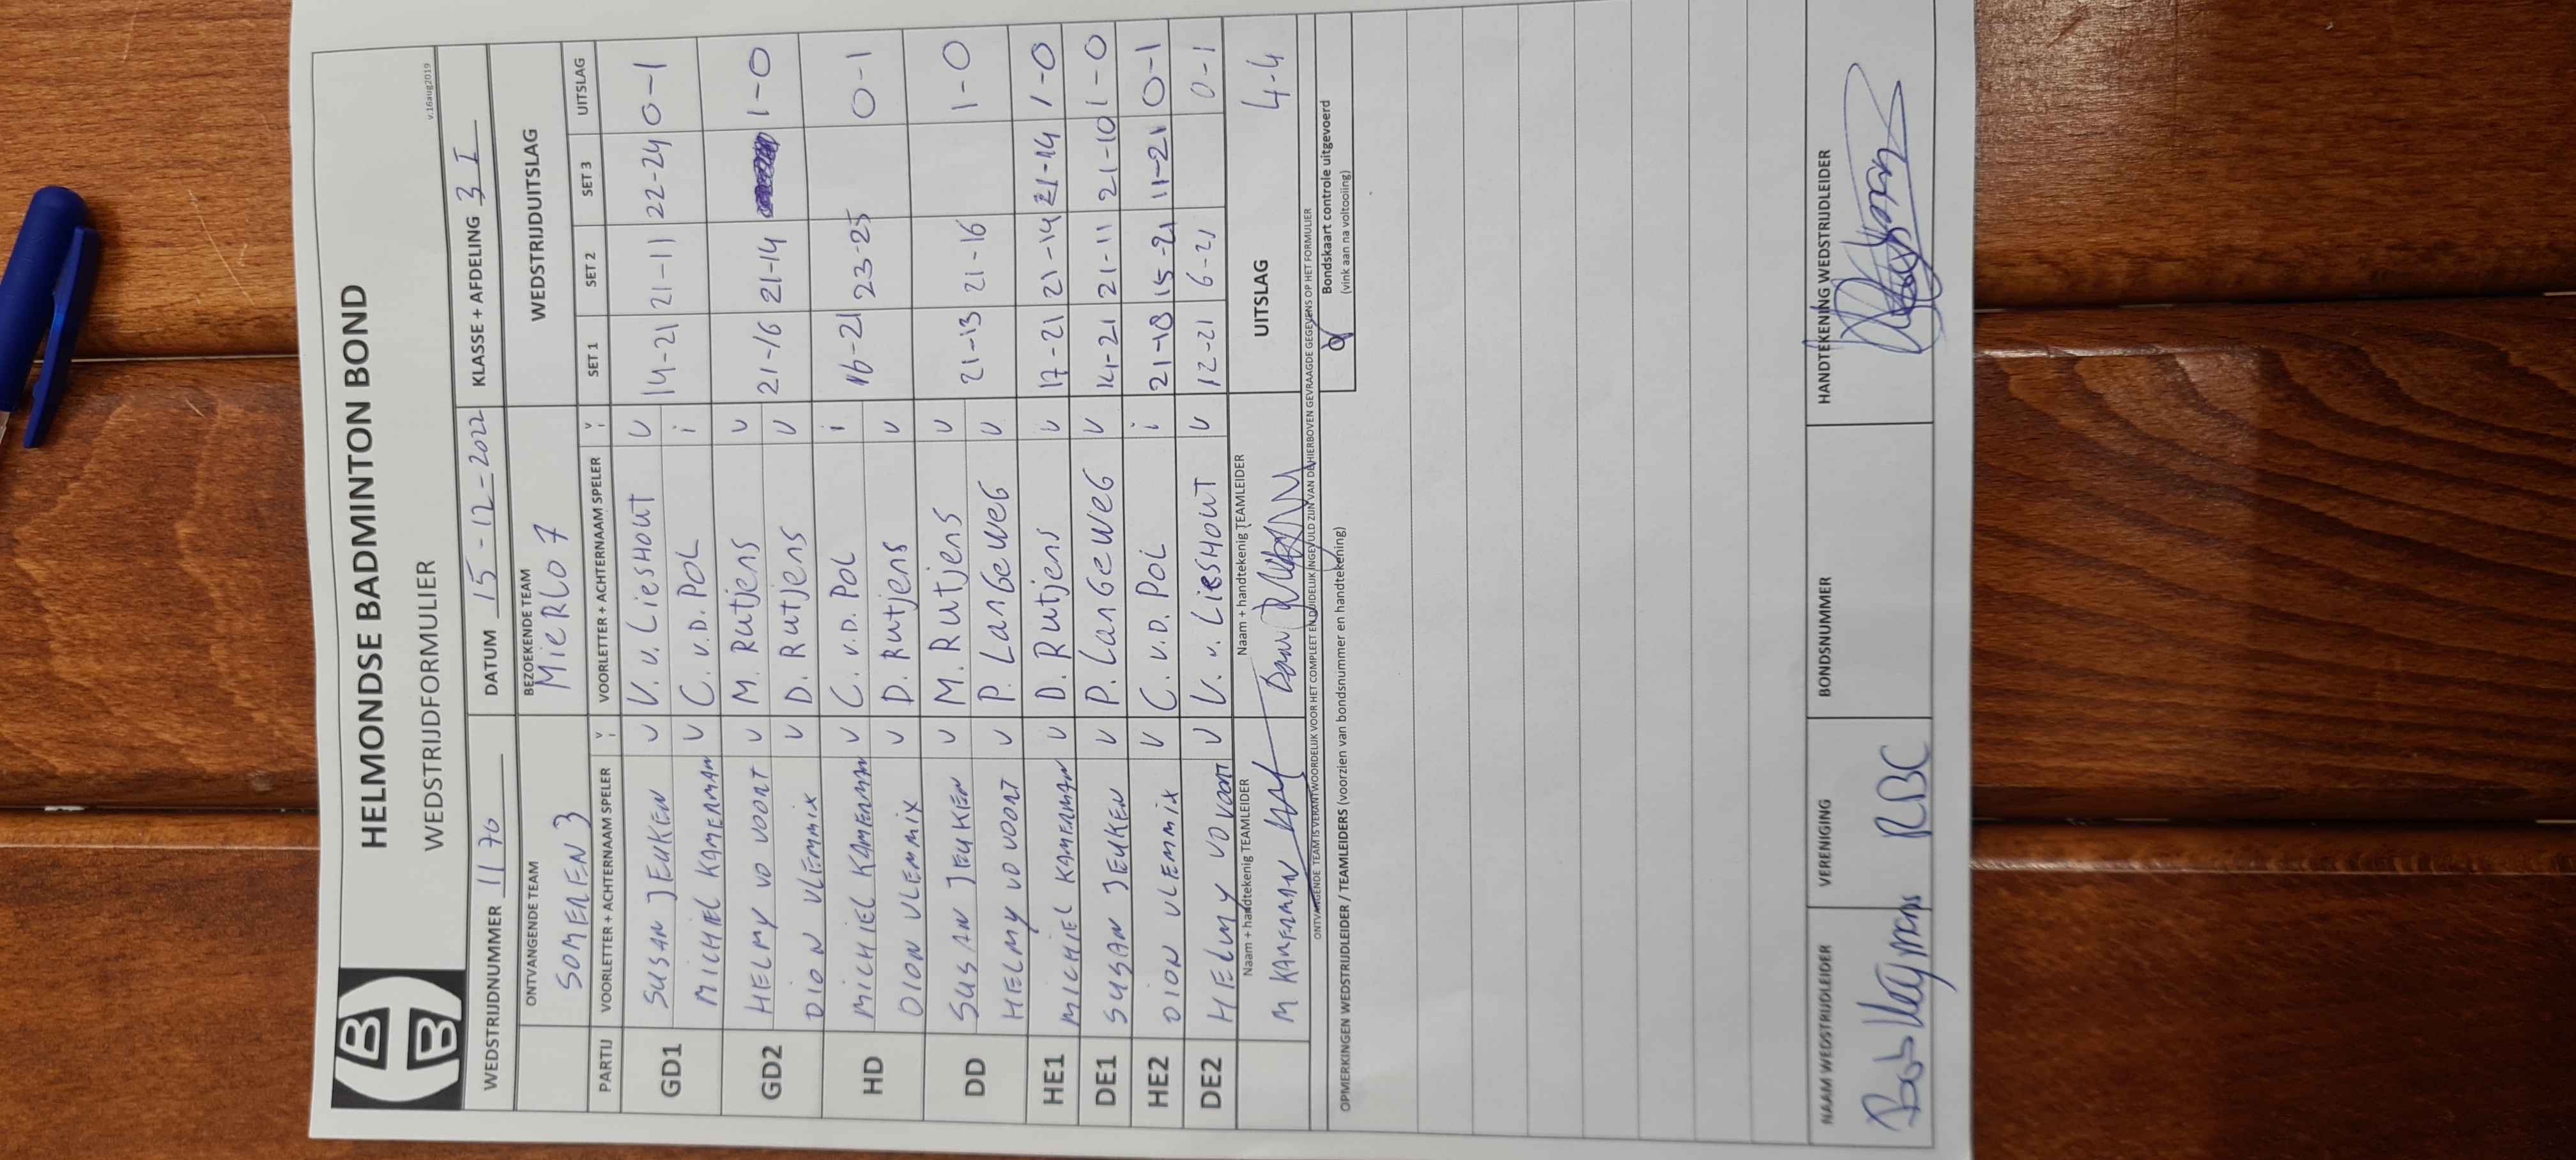 HELMONDSE BADMINTON BOND
WEDSTRIJDFORMULIER
v.16aug2019
WEDSTRIJDNUMMER 1170 DATUM 15-12-2022 KLASSE + AFDELING 3 I
ONTVANGENDE TEAM BEZOEKENDE TEAM WEDSTRIJDUITSLAG
SOMEREN 3 MieRLO 7
PARTIJ VOORLETTER + ACHTERNAAM SPELER V/I VOORLETTER + ACHTERNAAM SPELER V/I SET 1 SET 2 SET 3 UITSLAG
GD1 SUSAN JEUKEN V V. v. LiesHOUT V 14-21 21-11 22-24 0-1
MICHIEL KAMERMAN V C. v.D. POL i
GD2 HELMY VD VOORT V M. RUtjens V 21-16 21-14 1-0
DION VLEMMIX V D. RUtjens V
HD MICHIEL KAMERMAN V C. v.D. POL i 16-21 23-25 0-1
DION VLEMMIX V D. RUtjens V
DD SUSAN JEUKEN V M. RUtjens V 21-13 21-16 1-0
HELMY VD VOORT V P. LanGeWeG V
HE1 MICHIEL KAMERMAN V D. RUtjens V 17-21 21-14 21-14 1-0
DE1 SUSAN JEUKEN V P. LanGeWeG V 14-21 21-11 21-10 1-0
HE2 DION VLEMMIX V C. v.D. POL i 21-18 15-21 11-21 0-1
DE2 HELMY VD VOORT V V. v. LiesHOUT V 12-21 6-21 0-1
Naam + handtekenig TEAMLEIDER Naam + handtekenig TEAMLEIDER UITSLAG 4-4
M KAMERMAN
ONTVANGENDE TEAM IS VERANTWOORDELIJK VOOR HET COMPLEET EN DUIDELIJK INGEVULD ZIJN VAN DE HIERBOVEN GEVRAAGDE GEGEVENS OP HET FORMULIER
OPMERKINGEN WEDSTRIJDLEIDER / TEAMLEIDERS (voorzien van bondsnummer en handtekening)
Bondskaart controle uitgevoerd
(vink aan na voltooiing)
NAAM WEDSTRIJDLEIDER VERENIGING BONDSNUMMER HANDTEKENING WEDSTRIJDLEIDER
RBC